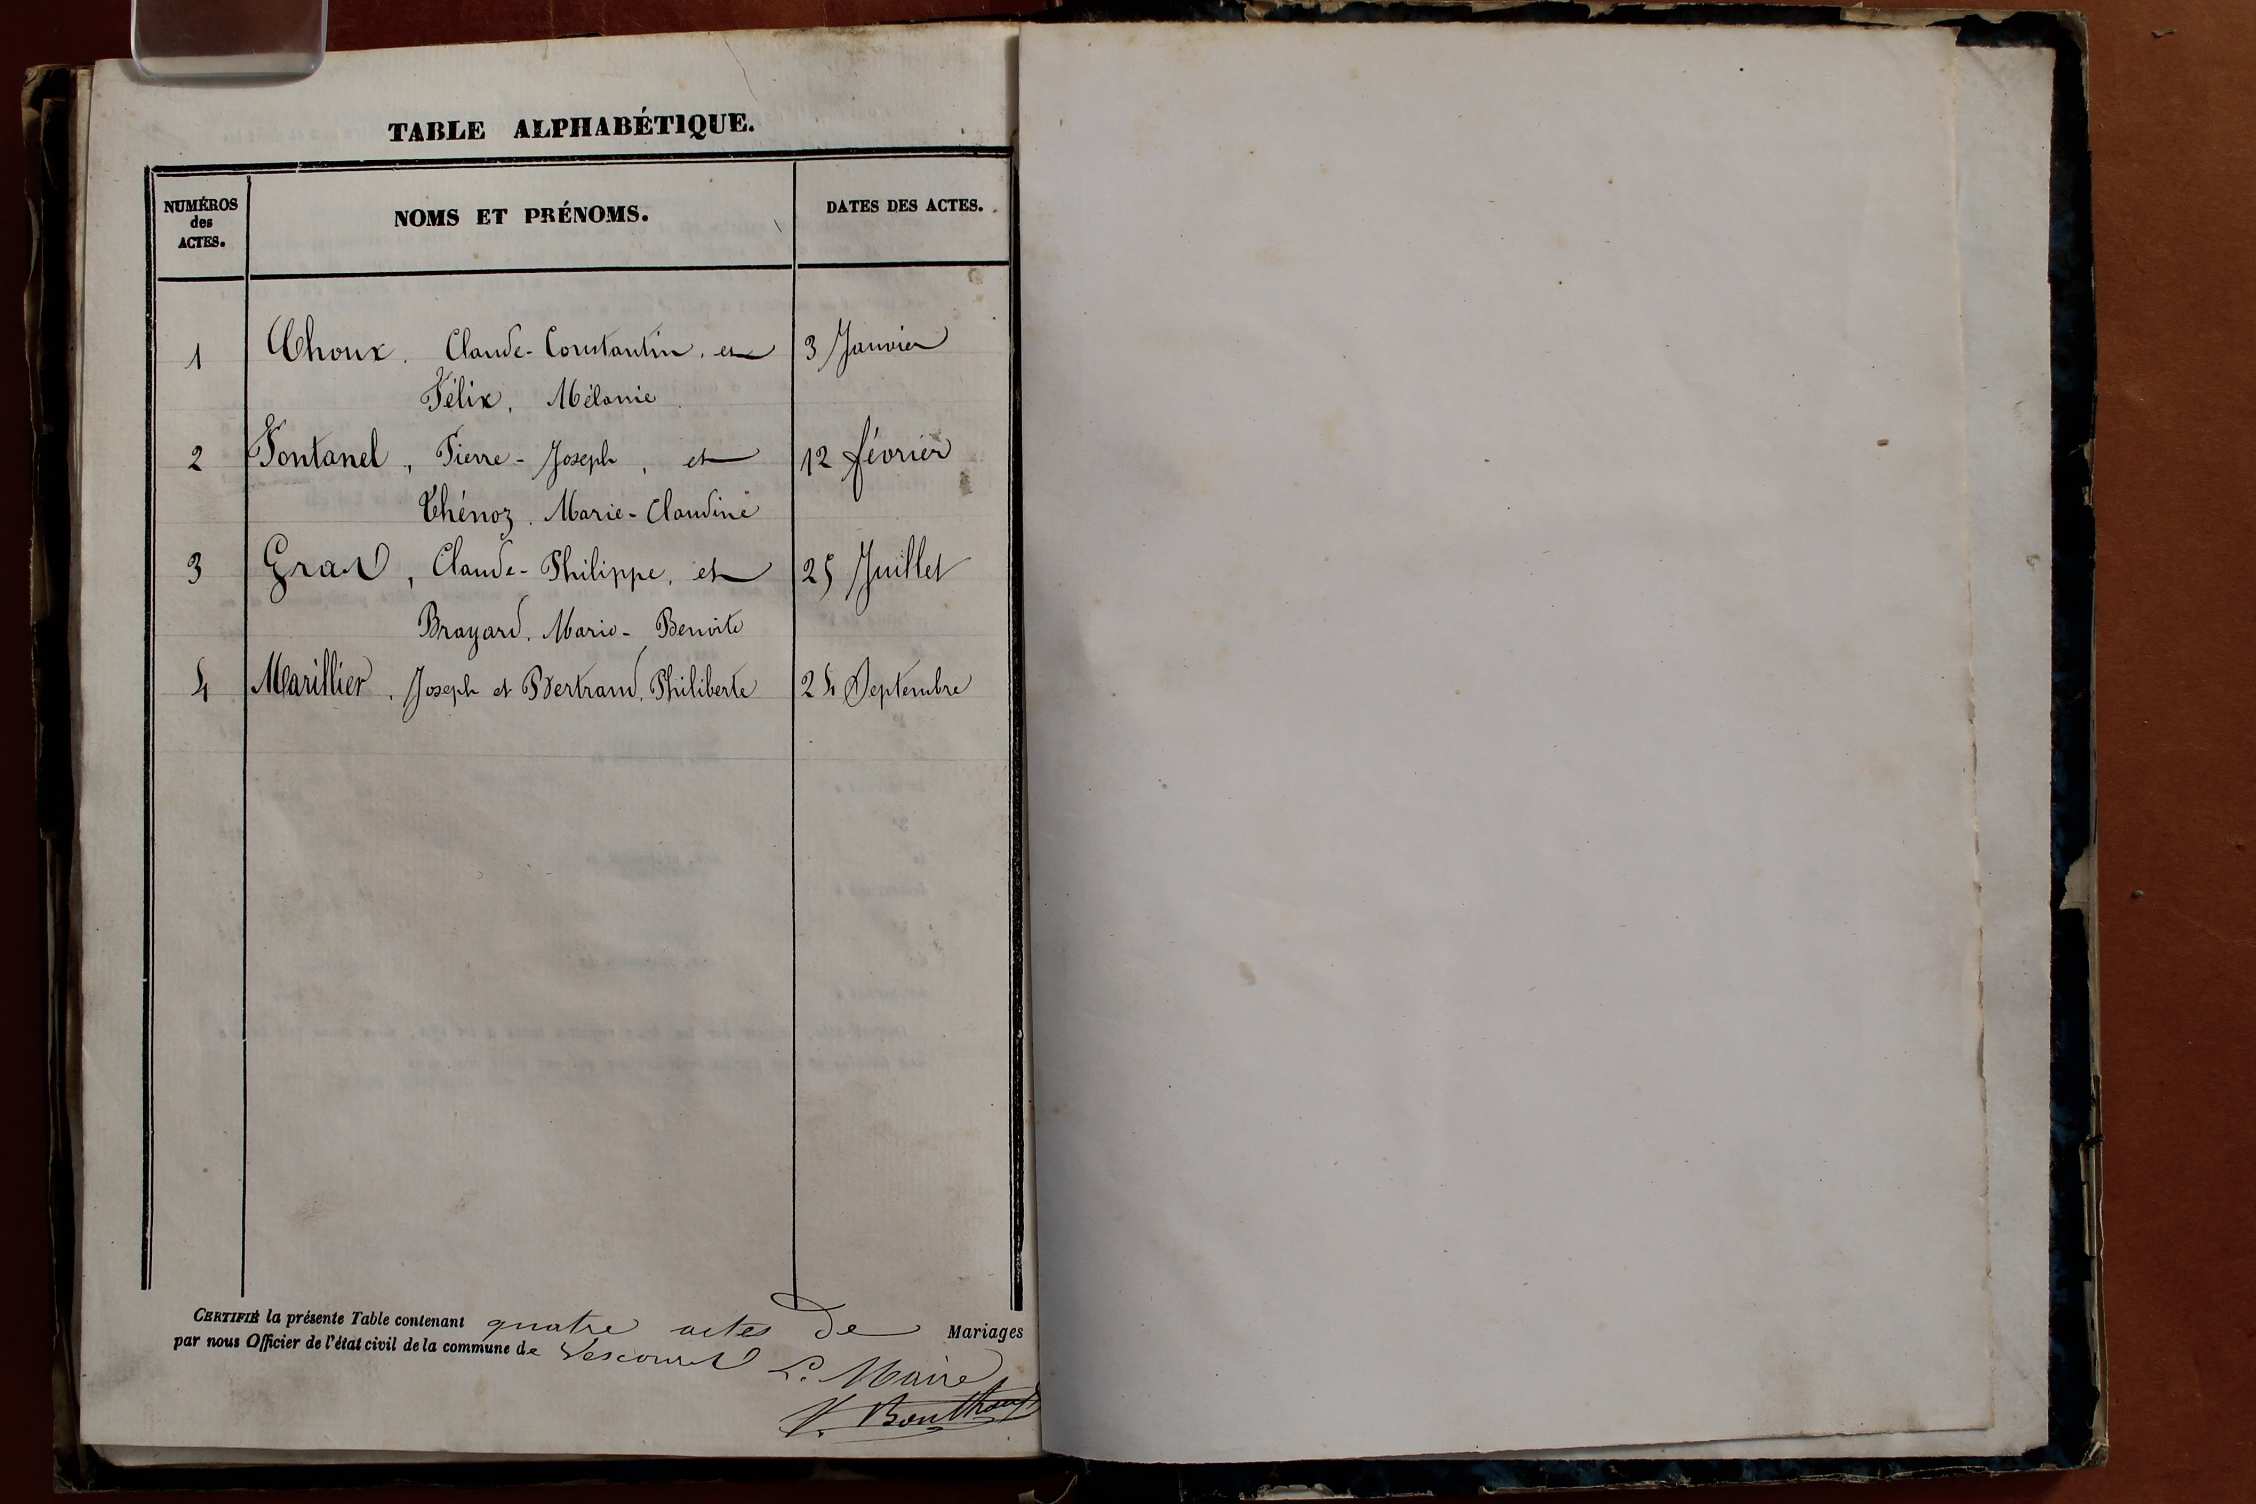 TABLE ALPHABÉTIQUE.
NUMÉROS
des
ACTES.
NOMS ET PRÉNOMS.
DATES DES ACTES.
1 Choux. Claude-Constantin, et 3 Janvier
Félix, Mélanie
2 Fontanel, Pierre-Joseph, et 12 février
Thénoz. Marie-Claudine
3 Grand, Claude-Philippe, et 25 Juillet
Brayard, Marie-Benoite
4 Marillier, Joseph et Bertrand, Philiberte 24 Septembre
CERTIFIÉ la présente Table contenant quatre actes de Mariages
par nous Officier de l'état civil de la commune de Lescouret
L. Maire